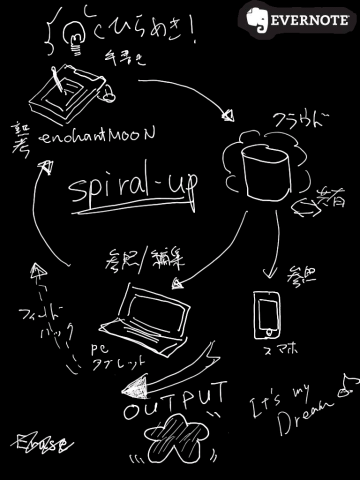 EVERNOTE
ひらめき!
手書き
クラウド
熟考
enchantMOON
spiral-up
共有
参照/編集
参照
フィードバック
PC
タブレット
スマホ
OUTPUT
It's my
Dream